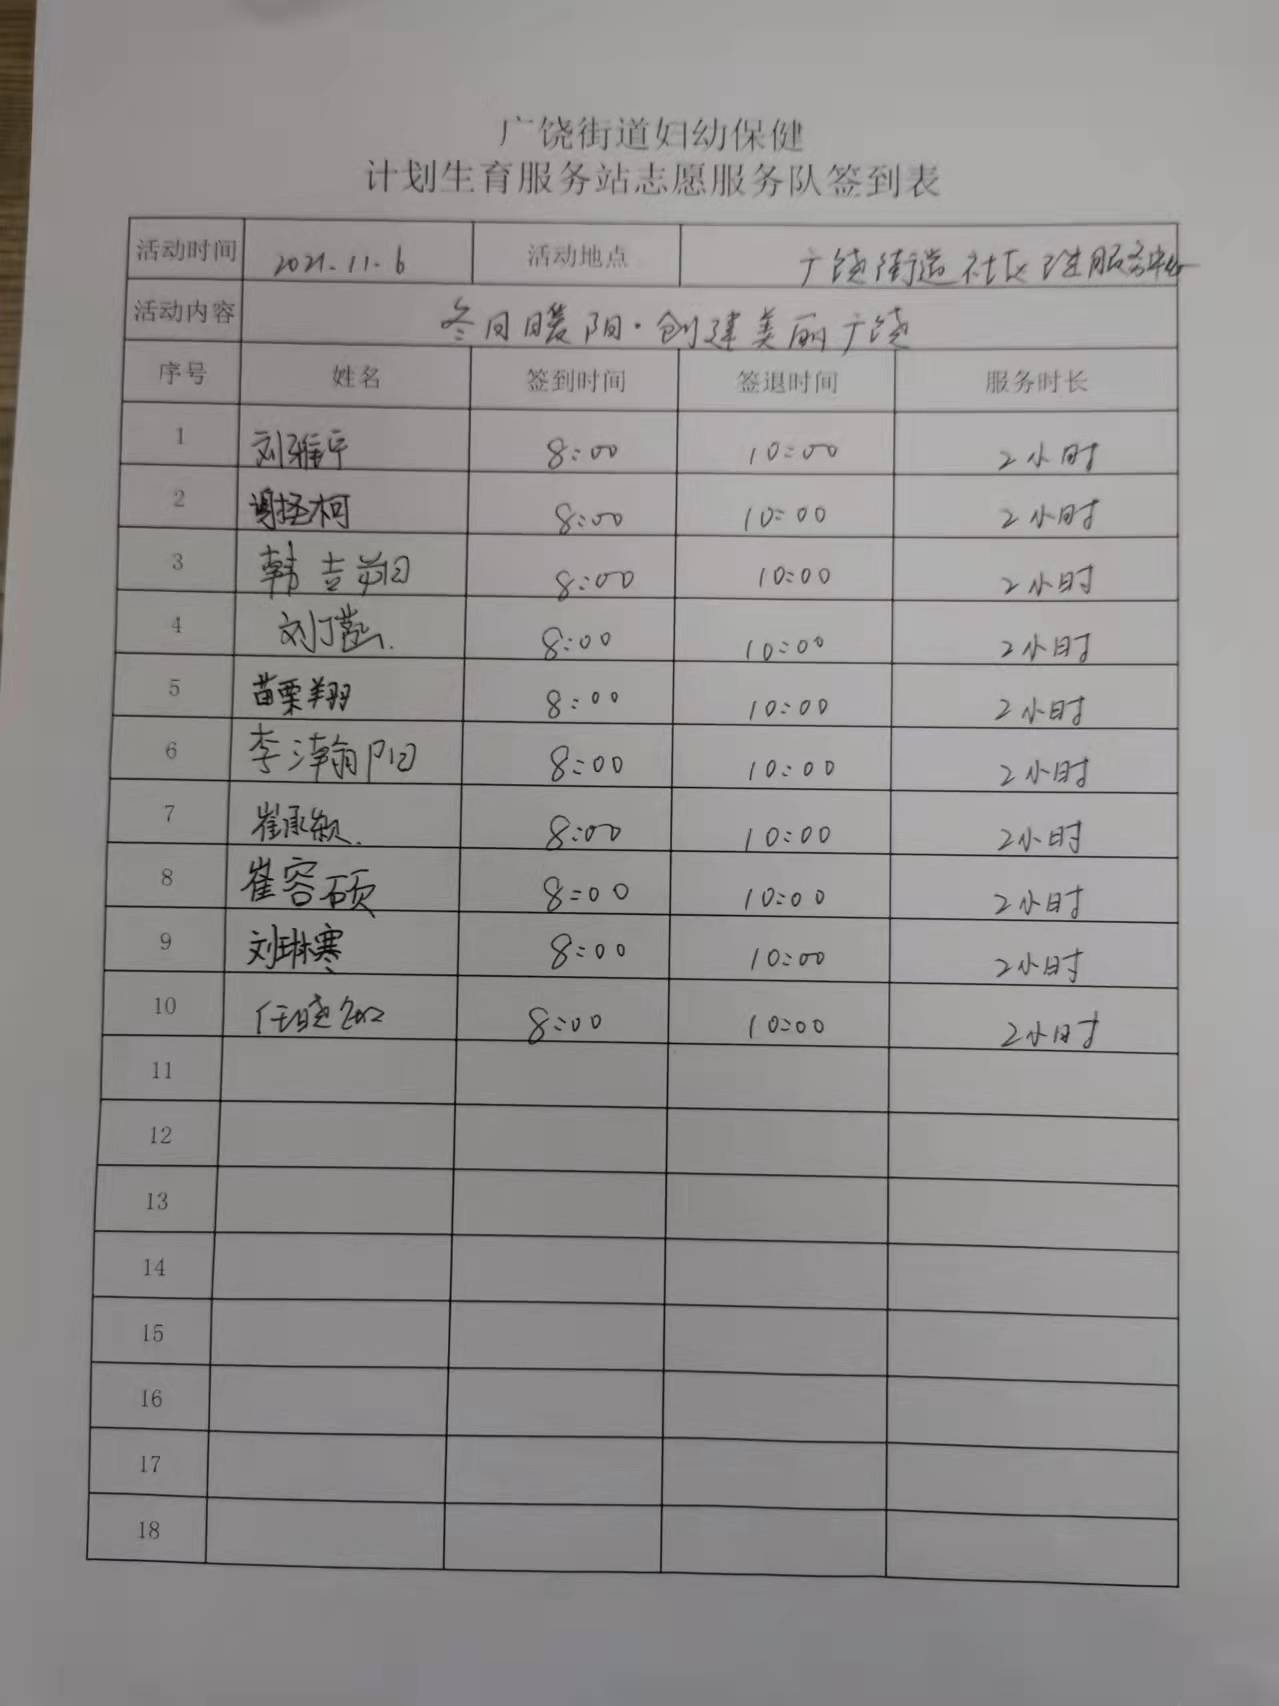 广饶街道妇幼保健
计划生育服务站志愿服务队签到表
活动时间 2021.11.6 活动地点 广饶街道社区卫生服务中心
活动内容 冬日暖阳·创建美丽广饶
序号 姓名 签到时间 签退时间 服务时长
1 刘雅宁 8:00 10:00 2小时
2 8:00 10:00 2小时
3 韩吉 8:00 10:00 2小时
4 刘丁 8:00 10:00 2小时
5 苗栗翔 8:00 10:00 2小时
6 李瀚阳 8:00 10:00 2小时
7 崔承颖 8:00 10:00 2小时
8 崔容硕 8:00 10:00 2小时
9 刘琳寒 8:00 10:00 2小时
10 任晓 8:00 10:00 2小时
11
12
13
14
15
16
17
18